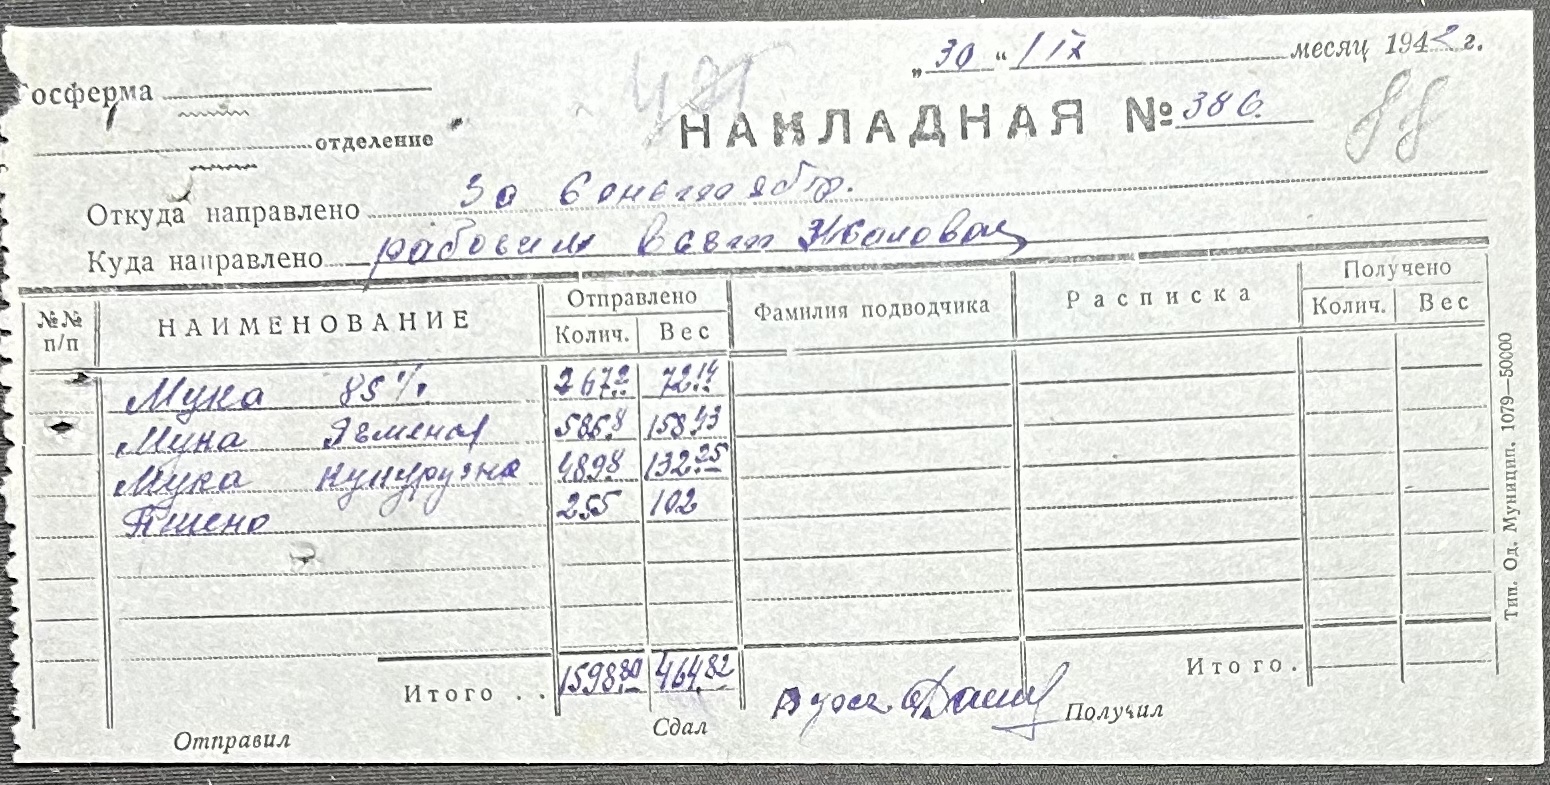 „30“ / IX месяц 1942 г.
осферма
отделение
НАКЛАДНАЯ № 386.
88
Откуда направлено за
Куда направлено рабочим
№№ п/п НАИМЕНОВАНИЕ Отправлено Фамилия подводчика Расписка Получено
Колич. Вес Колич. Вес
Мука 85% 267.2 72.14
Мука Ячменая 586.8 158.43
Мука кукурузна 489.8 132.25
Пшено 255 102
Итого . . 1598.80 464.82 Итого.
Отправил Сдал Получил
Тип. Од. Муницип. 1079—50000